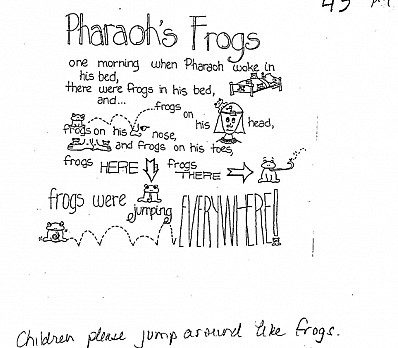 43
Pharaoh's Frogs
one morning when Pharaoh woke in
his bed,
there were frogs in his bed,
and...
frogs on his head,
frogs on his nose,
and frogs on his toes,
frogs HERE frogs THERE
frogs were jumping EVERYWHERE!
Children please jump around like frogs.